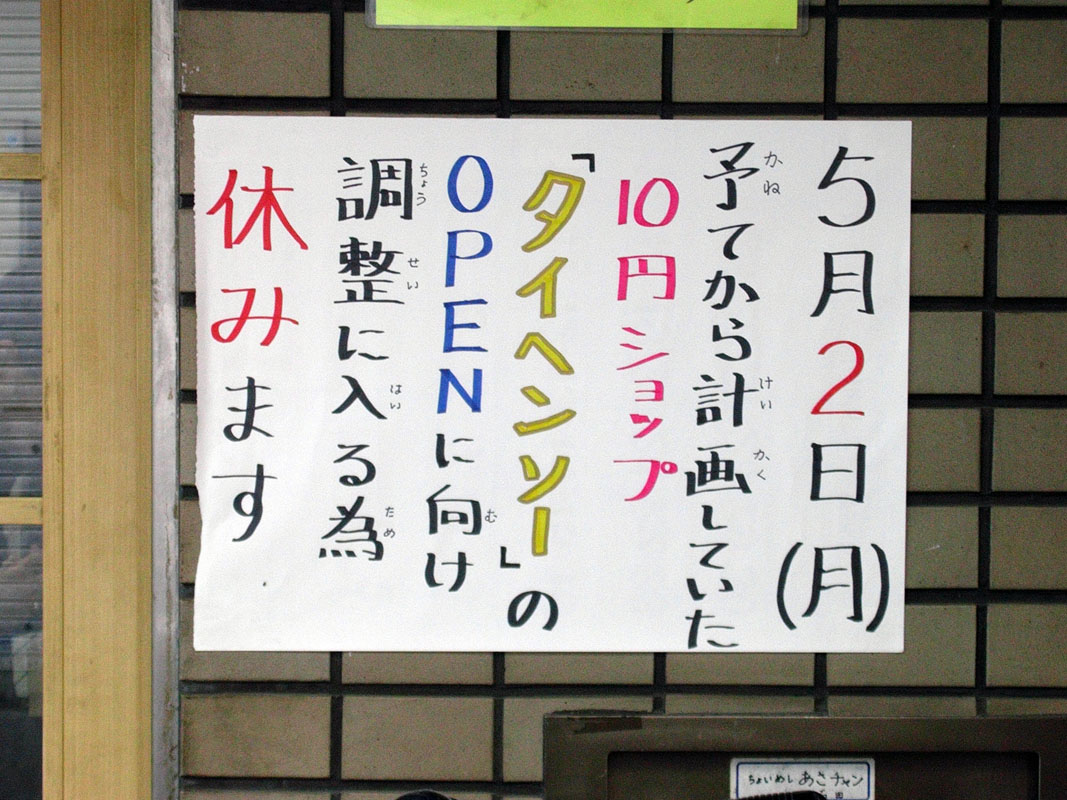 5月2日(月)
予てから計画していた
かね
けい
かく
10円ショップ
「タイヘンソー」の
OPENに向け
む
調整に入る為
ちょう
せい
はい
ため
休みます
ちょいめし あさチャン